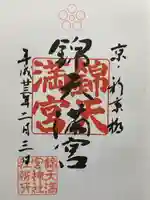 京・新京極
錦天満宮
錦天
満宮
平成廿三年二月三日
錦天満
宮神社
社務所